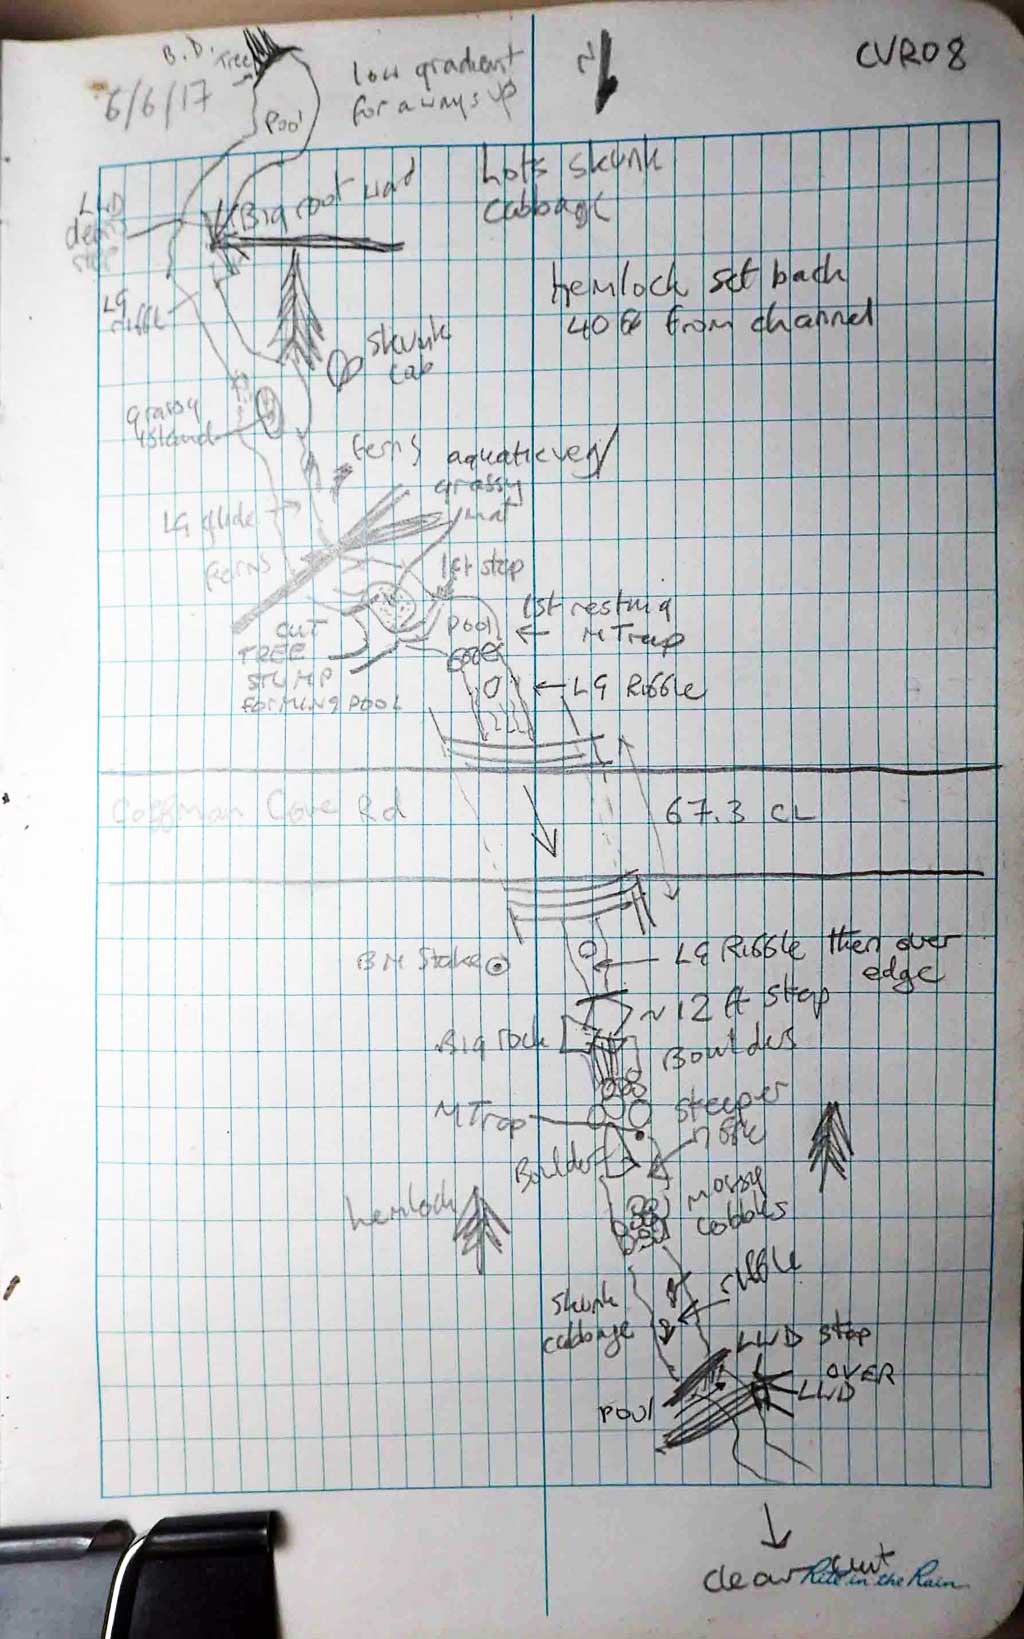 B.D.
Tree
CVR08
N
low gradient
for a ways up
6/6/17
Pool
Lots skunk
cabbage
LWD
debris
step
Big root wad
Hemlock set back
40ft from channel
LG
riffle
Skunk
cab
grassy
island
ferns
aquatic veg/
grassy
mat
LG glide
ferns
1st step
1st resting
Pool
M Trap
CUT
TREE
STUMP
FORMING POOL
LG Riffle
Coffman Cove Rd
67.3 CL
BM Stake
LG Riffle then over
edge
~12 ft step
Big rock
Boulders
M Trap
Steeper
riffle
Boulder
hemlock
mossy
cobbles
riffle
Skunk
cabbage
LWD step
OVER
LWD
Pool
clear cut
Rite in the Rain